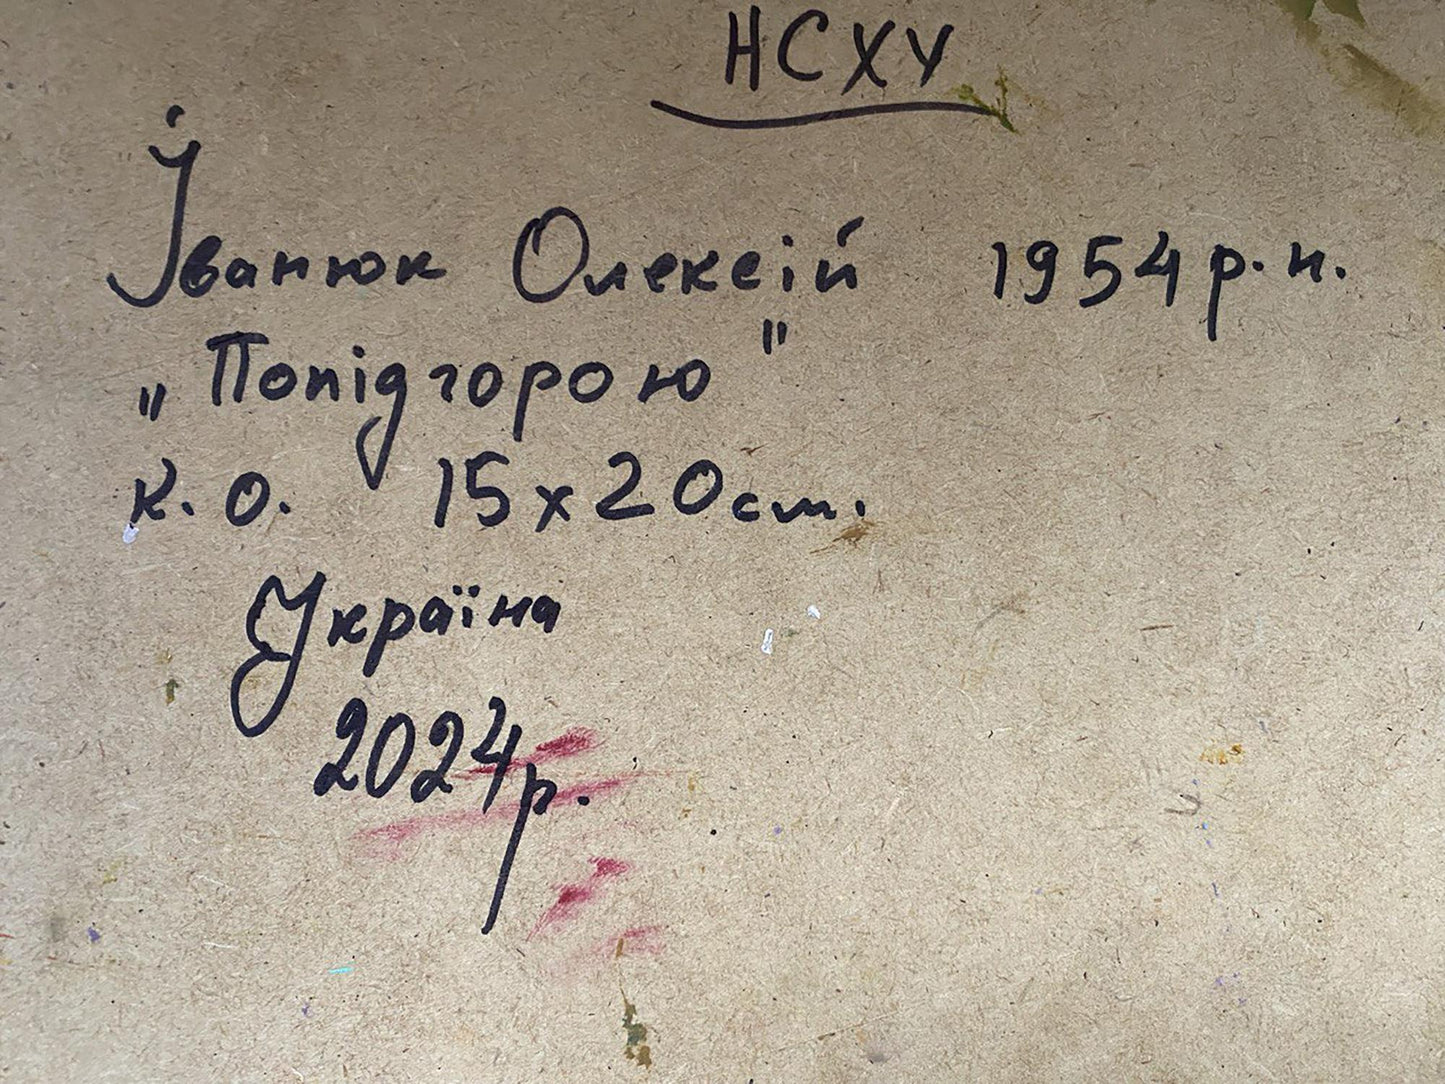 НСХУ
Іванюк Олексій 1954 р. н.
„Попідгорою"
к. о. 15х20 см.
Україна
2024р.